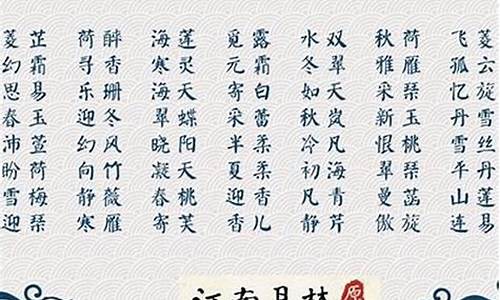 菱芷 荷醉 海莲 觅露 水双 秋荷 飞菱
幻霜 寻香 寒灵 元霜 冬翠 雅雁 孤云
思易 乐珊 海天 寄白 如天 采琹 忆旋
春玉 迎冬 翠蝶 采蕾 秋岚 新玉 丹雪
沛萱 幻风 晓阳 半柔 冷凡 恨桃 雪丝
盼荷 向竹 凝天 夏柔 初海 翠琹 平丹
雪梅 静薇 春桃 迎香 凡青 曼菡 山莲
迎琹 寒雁 寄芙 香儿 静芹 傲旋 连易